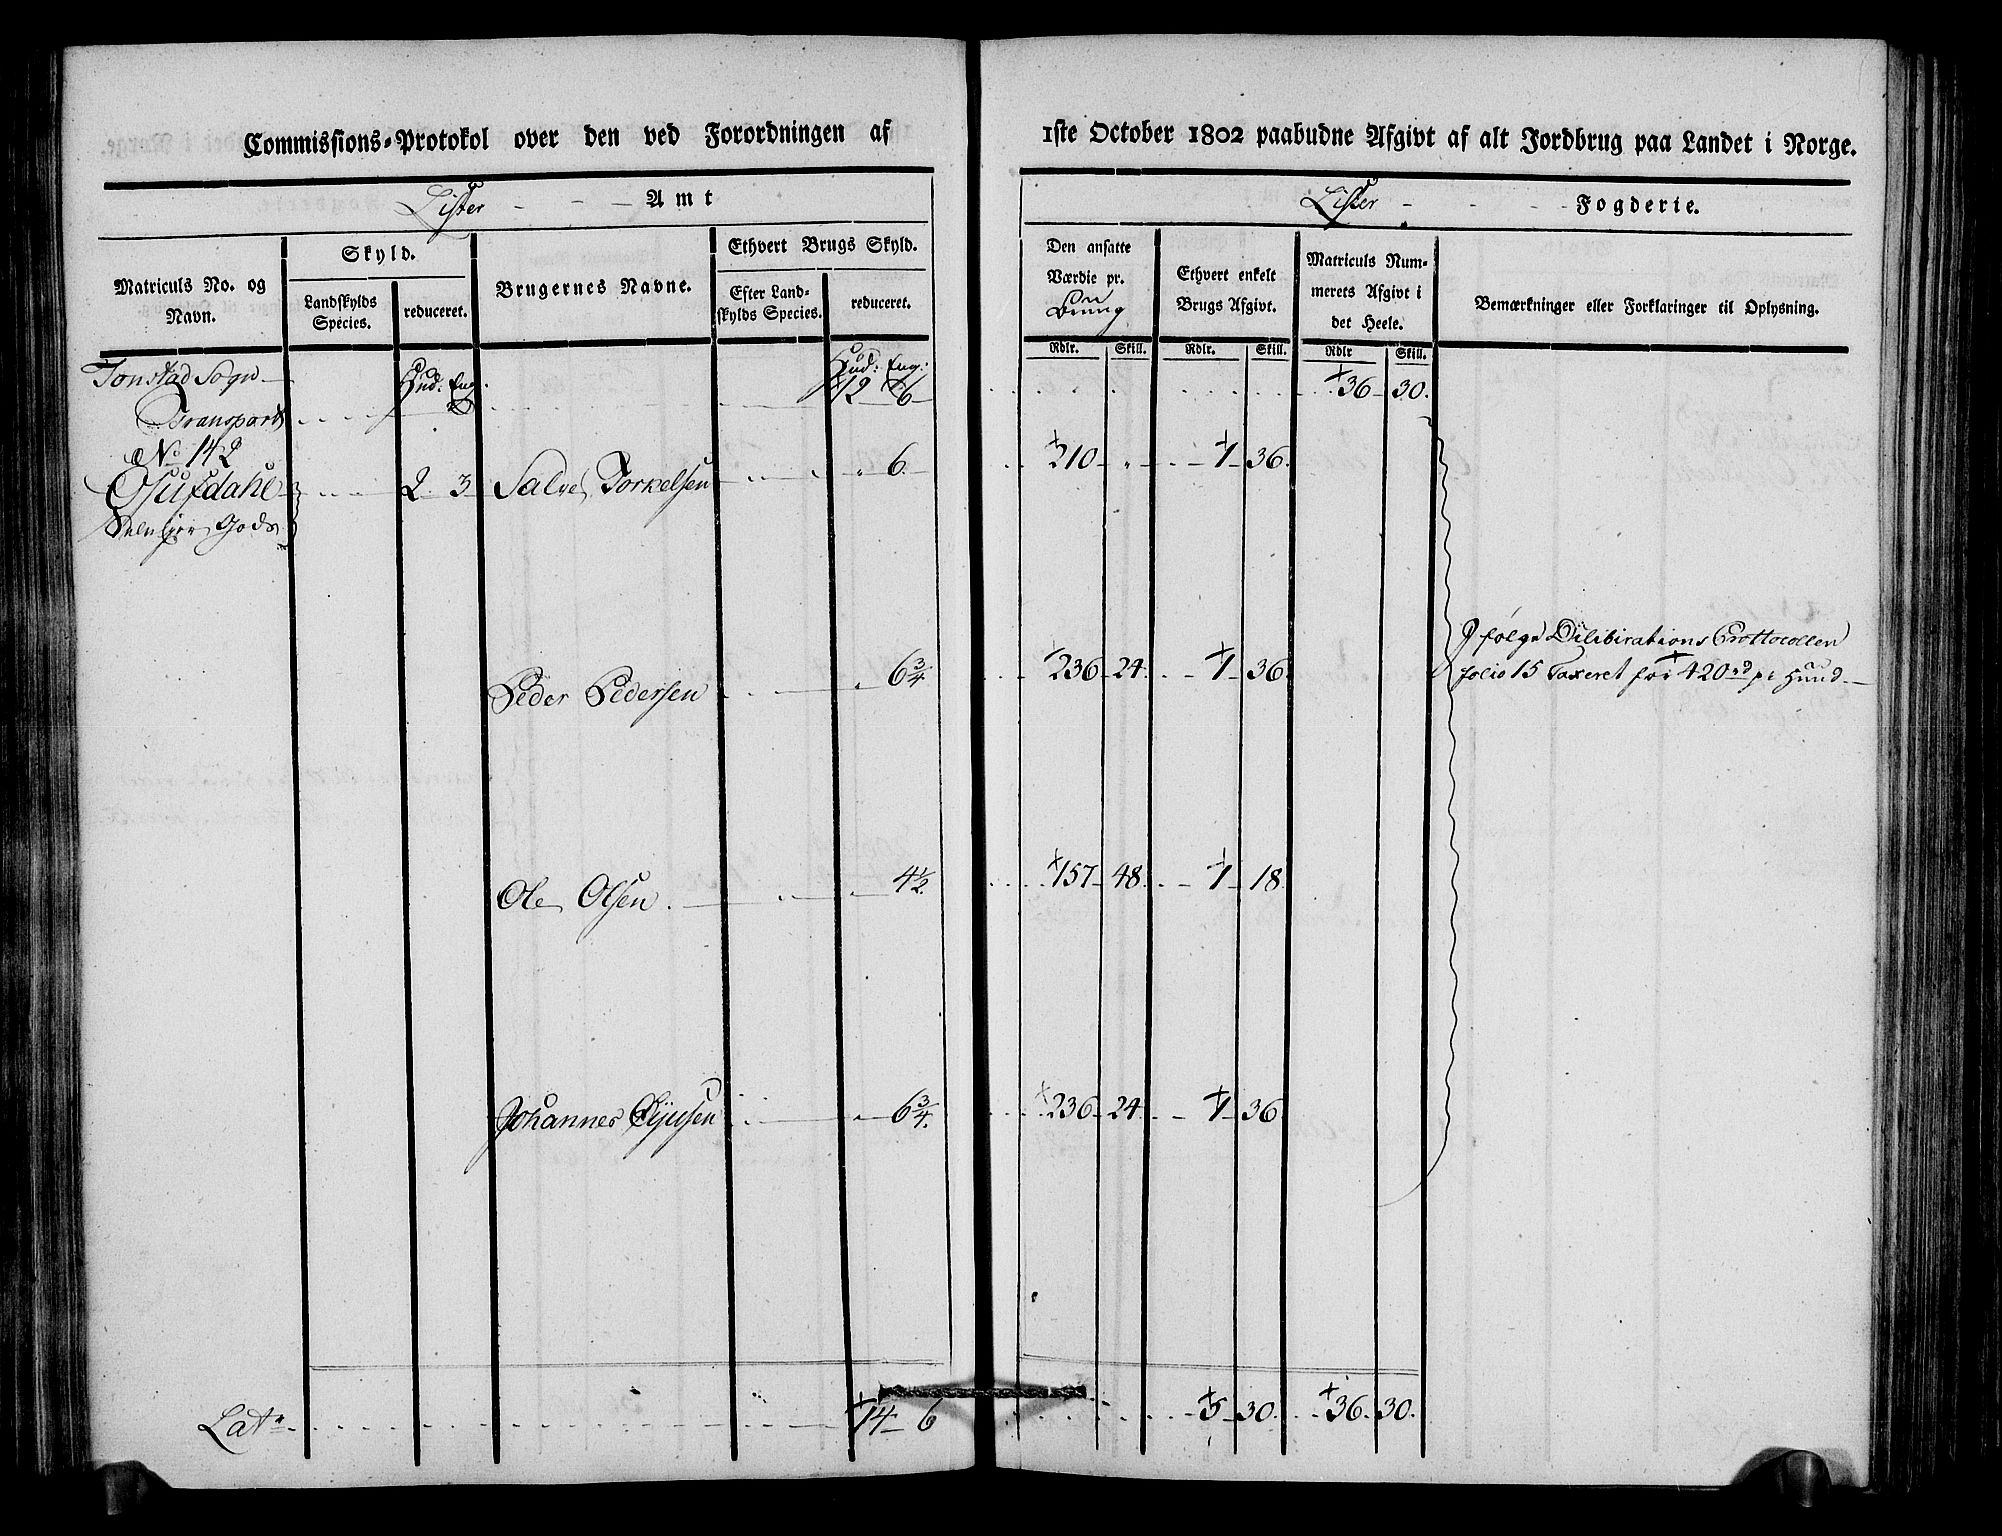 Commissions-Protokol over den ved Forordningen af 1ste October 1802 paabudne Afgivt af alt Jordbrug paa Landet i Norge.
Lister - - - Amt
Lister - - - Fogderie.
Matriculs No. og Navn.
Skyld.
Landskylds Species.
reduceret.
Brugernes Navne.
Ethvert Brugs Skyld.
Efter Landskylds Species.
reduceret.
Den ansatte Værdie pr.
Ethvert enkelt Brugs Afgivt.
Matriculs Nummerets Afgivt i det Heele.
Bemærkninger eller Forklaringer til Oplysning.
Rdlr. Skill. Rdlr. Skill. Rdlr Skill.
Tonstad Sogn Hud: Eng. Hud: Eng:
Transport 12 6 36 30.
No 142
2 3 Salve Torkelsen 6. 210 1 36.
Gods
Peder Pedersen 6 3/4. 236 24. 1 36.
følge Dilibirations Prottocollen
folio 15 Taxeret for 420 rd pr Huud
Ole Olsen 4 1/2. 157 48. 1 18
Johannes 6 3/4. 236 24. 1 36
Lats 14 6 5 30. 36 30.